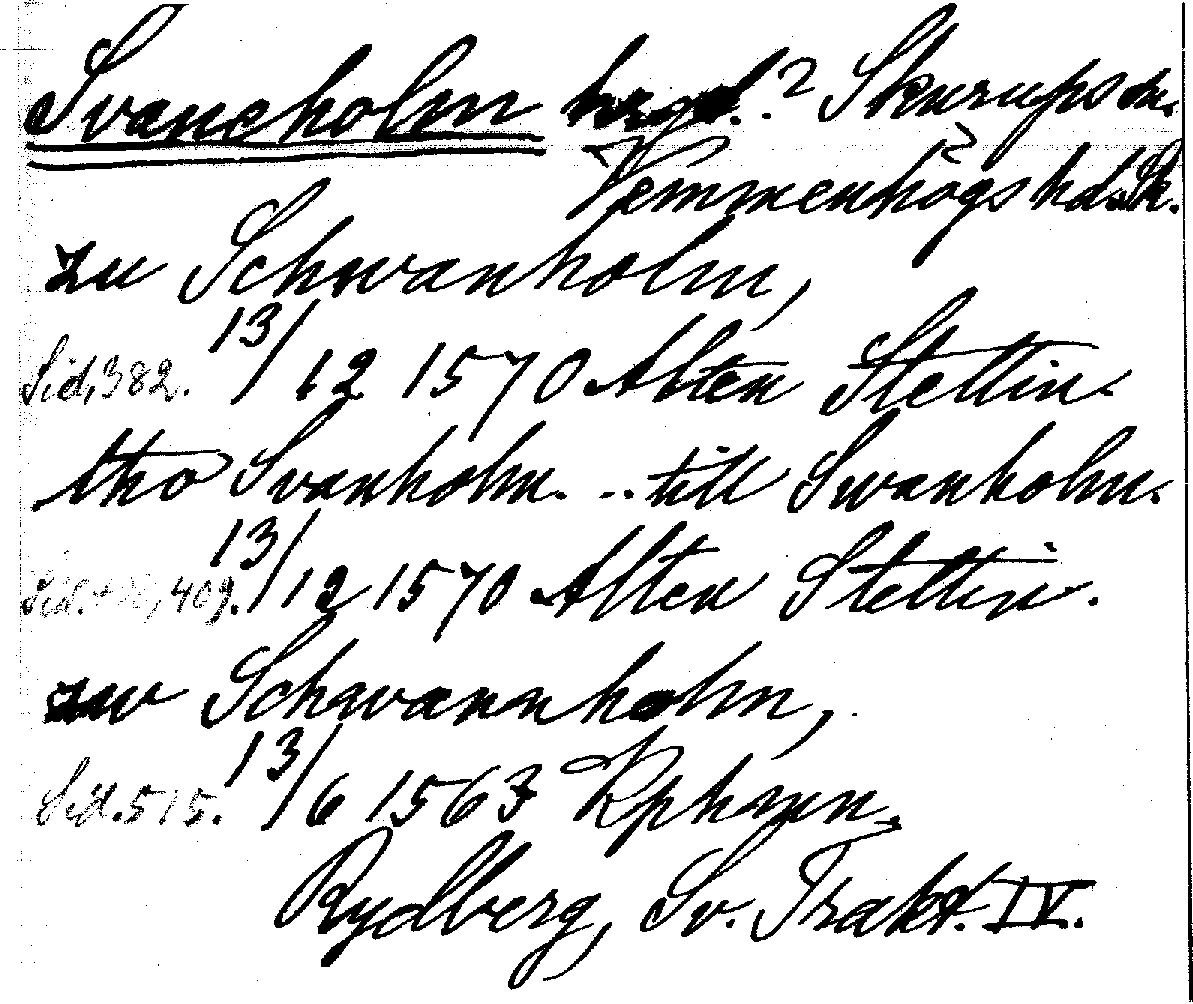 Svaneholm hrgd.? Skurups sn.
Vemmenhögs hd. Sk.
zu Schwanholm,
Sid. 382. 13/12 1570 Alten Stettin.
tho Svanholm. ... till Swanholm.
Sid. 409. 13/12 1570 Alten Stettin.
zw Schwannholm,
Sid. 515. 13/6 1563 Kphmn.
Rydberg, Sv. Trakt. IV.